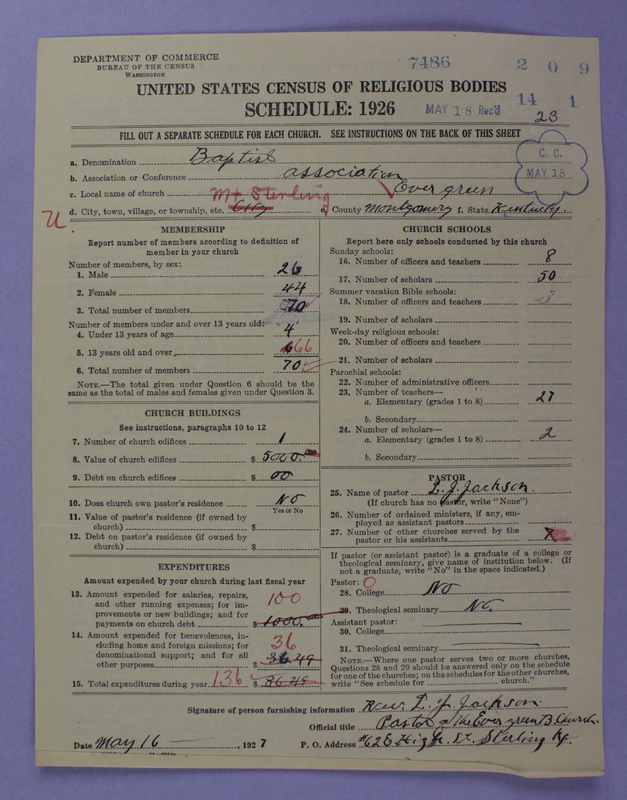 DEPARTMENT OF COMMERCE
BUREAU OF THE CENSUS
WASHINGTON
7486
2 0 9
UNITED STATES CENSUS OF RELIGIOUS BODIES
SCHEDULE: 1926
MAY 18 Rec'd
14 1
23
FILL OUT A SEPARATE SCHEDULE FOR EACH CHURCH. SEE INSTRUCTIONS ON THE BACK OF THIS SHEET
a. Denomination Baptist
b. Association or Conference association
c. Local name of church Evergreen
Mt Sterling
d. City, town, village, or township, etc. City e. County Montgomery f. State Kentucky
C. C.
MAY 18
U
MEMBERSHIP
Report number of members according to definition of
member in your church
Number of members, by sex:
1. Male 26
2. Female 44
3. Total number of members 70
Number of members under and over 13 years old:
4. Under 13 years of age 4
5. 13 years old and over 66
6. Total number of members 70
NOTE.—The total given under Question 6 should be the
same as the total of males and females given under Question 3.
CHURCH BUILDINGS
See instructions, paragraphs 10 to 12
7. Number of church edifices 1
8. Value of church edifices $ 5000.00
9. Debt on church edifices $ 00
10. Does church own pastor's residence No
Yes or No
11. Value of pastor's residence (if owned by
church) $
12. Debt on pastor's residence (if owned by
church) $
EXPENDITURES
Amount expended by your church during last fiscal year
13. Amount expended for salaries, repairs,
and other running expenses; for im-
provements or new buildings; and for
payments on church debt $ 1000.
100
14. Amount expended for benevolences, in-
cluding home and foreign missions; for
denominational support; and for all
other purposes $ 36.49
36
15. Total expenditures during year 136 $ 36.49
CHURCH SCHOOLS
Report here only schools conducted by this church
Sunday schools:
16. Number of officers and teachers 8
17. Number of scholars 50
Summer vacation Bible schools:
18. Number of officers and teachers 3
19. Number of scholars
Week-day religious schools:
20. Number of officers and teachers
21. Number of scholars
Parochial schools:
22. Number of administrative officers
23. Number of teachers—
a. Elementary (grades 1 to 8) 27
b. Secondary
24. Number of scholars—
a. Elementary (grades 1 to 8) 2
b. Secondary
PASTOR
25. Name of pastor L. J. Jackson.
(If church has no pastor, write "None")
26. Number of ordained ministers, if any, em-
ployed as assistant pastors
27. Number of other churches served by the
pastor or his assistants
If pastor (or assistant pastor) is a graduate of a college or
theological seminary, give name of institution below. (If
not a graduate, write "No" in the space indicated.)
Pastor: 0
28. College No
29. Theological seminary No.
Assistant pastor:
30. College
31. Theological seminary
NOTE.—Where one pastor serves two or more churches,
Questions 28 and 29 should be answered only on the schedule
for one of the churches; on the schedules for the other churches,
write "See schedule for church."
Signature of person furnishing information Rev. L. J. Jackson
Official title Pastor of the Evergreen B. Church
Date May 16, 1927 P. O. Address #62 E High St. Sterling Ky.